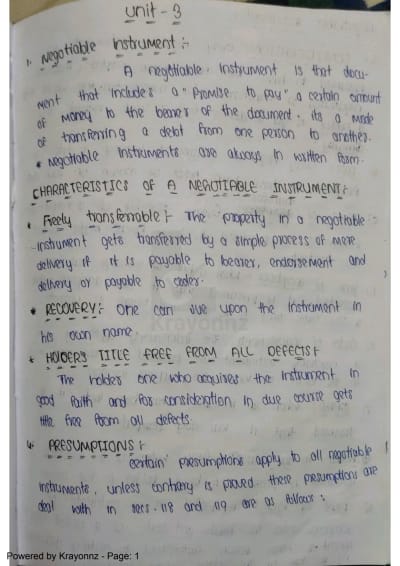 unit - 3
1. Negotiable Instrument :-
A negotiable Instrument is that docu-
ment that includes a "promise to pay" a certain amount
of money to the bearer of the document. its a mode
of transferring a debt from one person to another.
* Negotiable Instruments are always in written form.
CHARACTERISTICS OF A NEGOTIABLE INSTRUMENT:-
* Freely transferrable :- The property in a negotiable
instrument gets transferred by a simple process of mere
delivery if it is payable to bearer, endorsement and
delivery or payable to order.
* RECOVERY:- One can sue upon the instrument in
his own name.
* HOLDERS TITLE FREE FROM ALL DEFECTS:-
The holder one who acquires the instrument in
good faith and for consideration in due course gets
title free from all defects.
4. PRESUMPTIONS :-
certain presumptions apply to all negotiable
instruments, unless contrary is proved these presumptions are
deal with in secs. 118 and 119 are as follows :
Krayonnz
Powered by Krayonnz - Page: 1